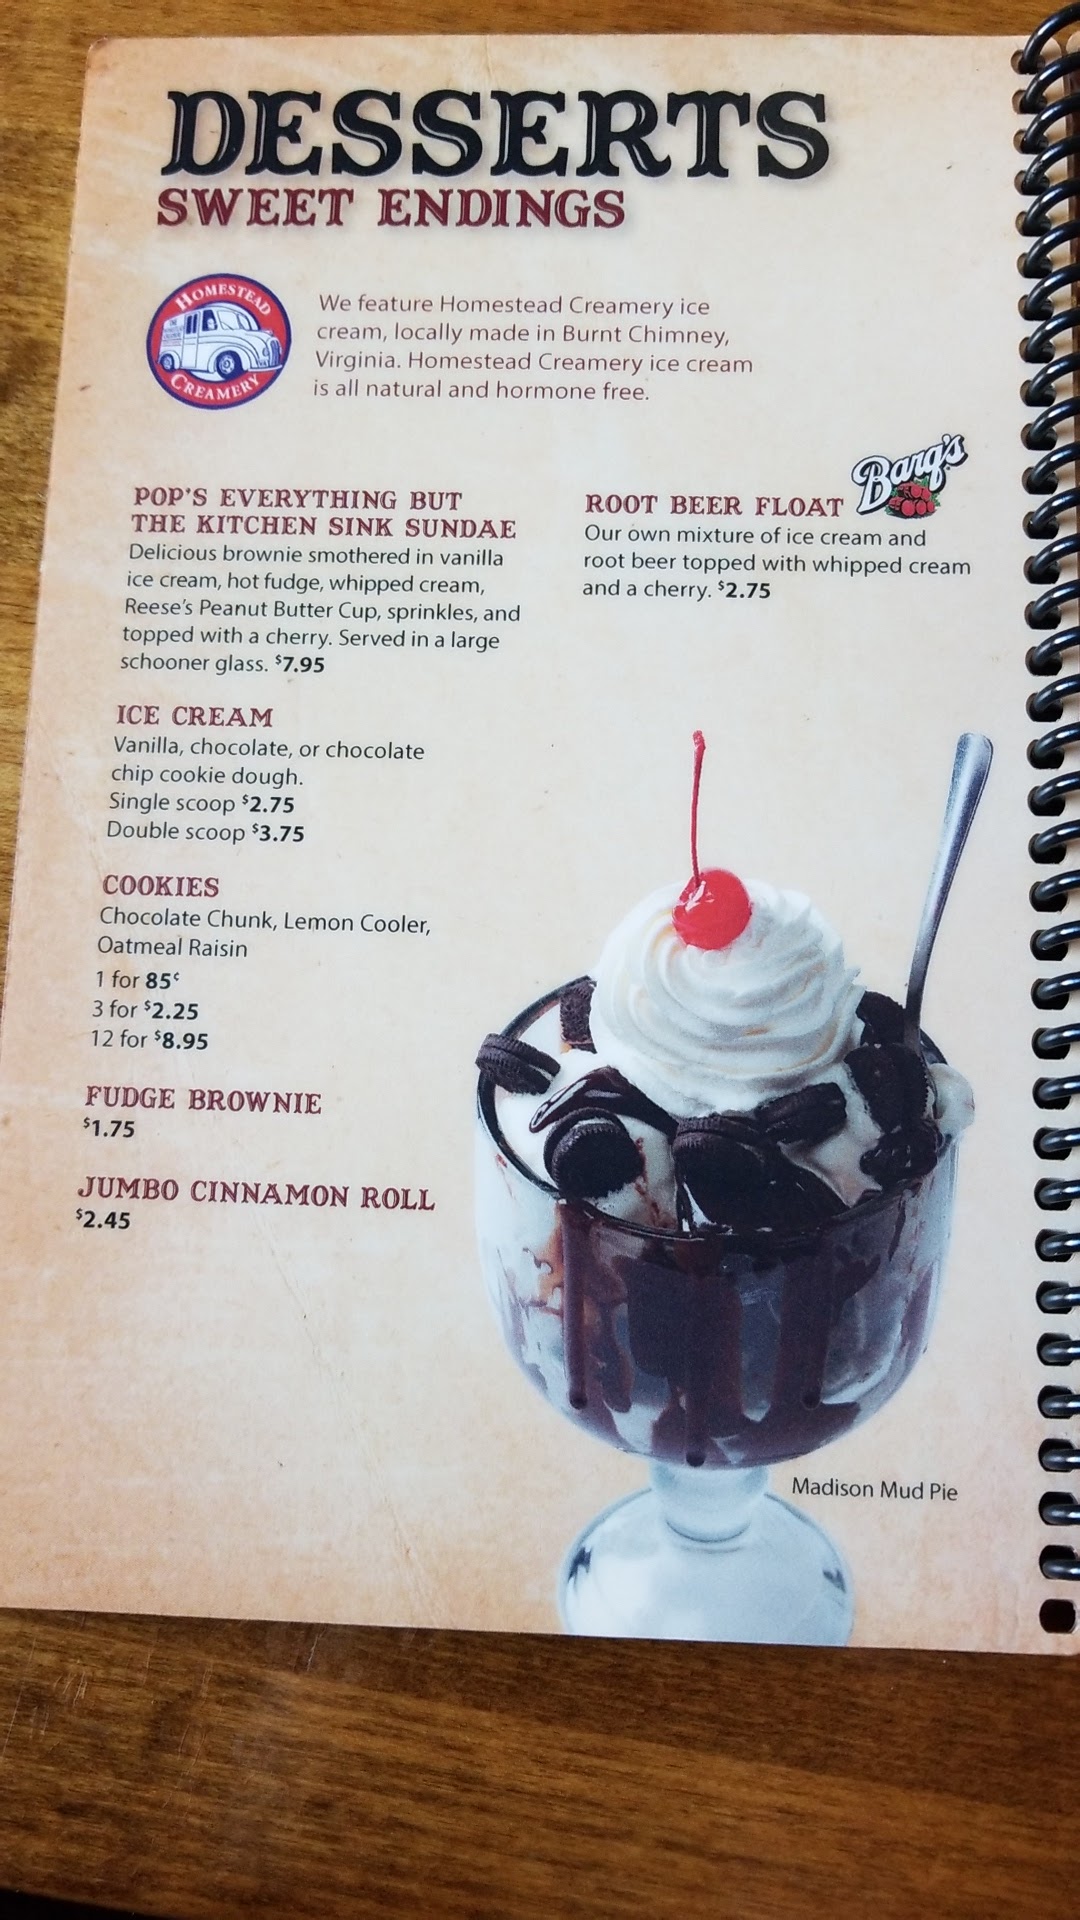 DESSERTS
SWEET ENDINGS
HOMESTEAD
CREAMERY
We feature Homestead Creamery ice
cream, locally made in Burnt Chimney,
Virginia. Homestead Creamery ice cream
is all natural and hormone free.
POP'S EVERYTHING BUT
THE KITCHEN SINK SUNDAE
Delicious brownie smothered in vanilla
ice cream, hot fudge, whipped cream,
Reese's Peanut Butter Cup, sprinkles, and
topped with a cherry. Served in a large
schooner glass. $7.95
ICE CREAM
Vanilla, chocolate, or chocolate
chip cookie dough.
Single scoop $2.75
Double scoop $3.75
COOKIES
Chocolate Chunk, Lemon Cooler,
Oatmeal Raisin
1 for 85¢
3 for $2.25
12 for $8.95
FUDGE BROWNIE
$1.75
JUMBO CINNAMON ROLL
$2.45
Barq's
ROOT BEER FLOAT
Our own mixture of ice cream and
root beer topped with whipped cream
and a cherry. $2.75
Madison Mud Pie